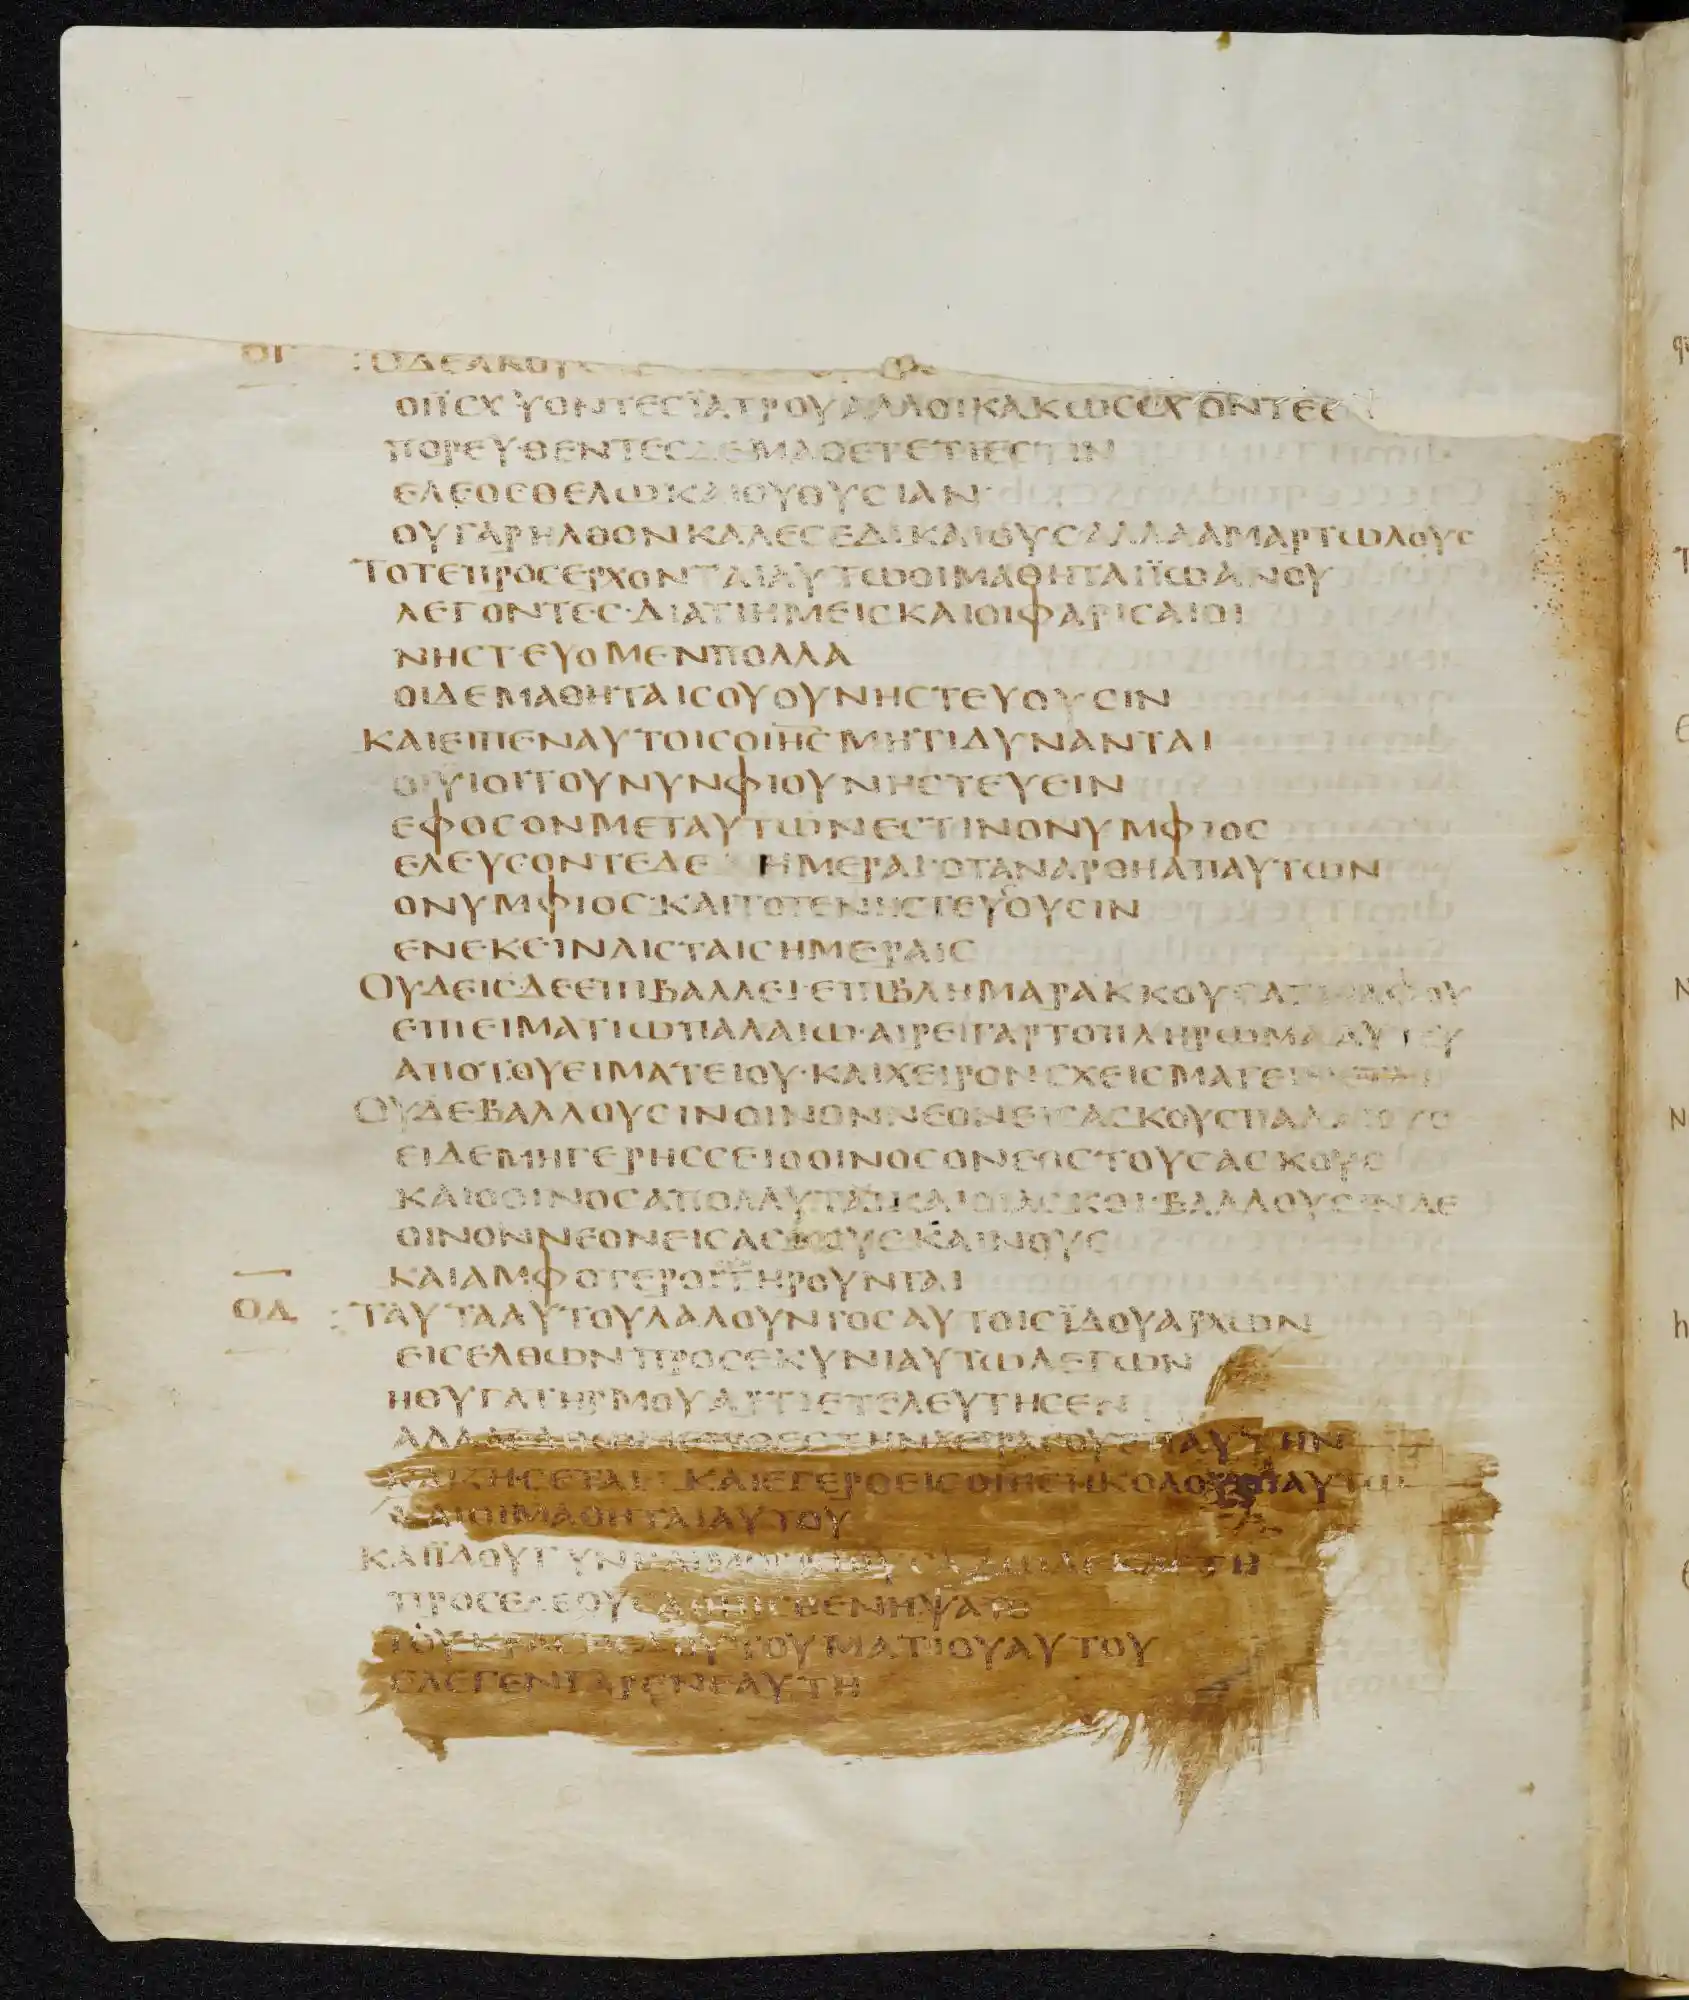 ΟΓ :ΟΔΕΑΚΟΥ
ΟΙΪϹΧΥΟΝΤΕϹΪΑΤΡΟΥΑΛΛΟΙΚΑΚΩϹΕΧΟΝΤΕϹ
ΠΟΡΕΥΘΕΝΤΕϹΔΕΜΑΘΕΤΕΤΙΕϹΤΙΝ
ΕΛΕΟϹΘΕΛΩΚΑΙΟΥΘΥϹΙΑΝ
ΟΥΓΑΡΗΛΘΟΝΚΑΛΕϹΕΔΙΚΑΙΟΥϹΑΛΛΑΑΜΑΡΤΩΛΟΥϹ
ΤΟΤΕΠΡΟϹΕΡΧΟΝΤΑΙΑΥΤΩΟΙΜΑΘΗΤΑΙΪΩΑΝΟΥ
ΛΕΓΟΝΤΕϹ·ΔΙΑΤΙΗΜΕΙϹΚΑΙΟΙΦΑΡΙϹΑΙΟΙ
ΝΗϹΤΕΥΟΜΕΝΠΟΛΛΑ
ΟΙΔΕΜΑΘΗΤΑΙϹΟΥΟΥΝΗϹΤΕΥΟΥϹΙΝ
ΚΑΙΕΙΠΕΝΑΥΤΟΙϹΟΙΗϹΜΗΤΙΔΥΝΑΝΤΑΙ
ΟΙΫΙΟΙΤΟΥΝΥΝΦΙΟΥΝΗϹΤΕΥΕΙΝ
ΕΦΟϹΟΝΜΕΤΑΥΤΩΝΕϹΤΙΝΟΝΥΜΦΙΟϹ
ΕΛΕΥϹΟΝΤΕΔΕ ΗΜΕΡΑΙ·ΟΤΑΝΑΡΘΗΑΠΑΥΤΩΝ
ΟΝΥΜΦΙΟϹ·ΚΑΙΤΟΤΕΝΗϹΤΕΥϹΟΥϹΙΝ
ΕΝΕΚΕΙΝΑΙϹΤΑΙϹΗΜΕΡΑΙϹ
ΟΥΔΕΙϹΔΕΕΠΙΒΑΛΛΕΙ·ΕΠΙΒΛΗΜΑΡΑΚΚΟΥϹΑΓΝΑΦΟΥ
ΕΠΙΕΙΜΑΤΙΩΠΑΛΑΙΩ·ΑΙΡΕΙΓΑΡΤΟΠΛΗΡΩΜΑΑΥΤΟΥ
ΑΠΟΤΟΥΕΙΜΑΤΕΙΟΥ·ΚΑΙΧΕΙΡΟΝϹΧΕΙϹΜΑΓΕΙΝΕΤΑΙ
ΟΥΔΕΒΑΛΛΟΥϹΙΝΟΙΝΟΝΝΕΟΝΕΙϹΑϹΚΟΥϹΠΑΛΑΙΟΥϹ
ΕΙΔΕΜΗΓΕΡΗϹϹΕΙΟΟΙΝΟϹΟΝΕΟϹΤΟΥϹΑϹΚΟΥϹ
ΚΑΙΟΟΙΝΟϹΑΠΟΛΛΥΤΑΙΚΑΙΟΙΑϹΚΟΙ·ΒΑΛΛΟΥϹΙΝΔΕ
ΟΙΝΟΝΝΕΟΝΕΙϹΑϹΚΟΥϹΚΑΙΝΟΥϹ
ΚΑΙΑΜΦΟΤΕΡΟΙΤΗΡΟΥΝΤΑΙ
ΟΔ :ΤΑΥΤΑΑΥΤΟΥΛΑΛΟΥΝΤΟϹΑΥΤΟΙϹΪΔΟΥΑΡΧΩΝ
ΕΙϹΕΛΘΩΝΠΡΟϹΕΚΥΝΙΑΥΤΩΛΕΓΩΝ
ΗΘΥΓΑΤΗΡΜΟΥΑΡΤΙΕΤΕΛΕΥΤΗϹΕΝ
ΑΛΛΑΕΛΘΩΝΕΠΙΘΕϹΤΗΝΧΕΙΡΑϹΟΥΕΠΑΥΤΗΝ
ΚΑΙΖΗϹΕΤΑΙ ΚΑΙΕΓΕΡΘΕΙϹΟΙΗϹΗΚΟΛΟΥΘΙΑΥΤΩ
ΚΑΙΟΙΜΑΘΗΤΑΙΑΥΤΟΥ
ΚΑΙΪΔΟΥΓΥΝΗΑΙΜΟΡΡΟΟΥϹΑΔΩΔΕΚΑΕΤΗ
ΠΡΟϹΕΛΘΟΥϹΑΟΠΙϹΘΕΝΗΨΑΤΟ
ΤΟΥΚΡΑϹΠΕΔΟΥΤΟΥΜΑΤΙΟΥΑΥΤΟΥ
ΕΛΕΓΕΝΓΑΡΕΝΕΑΥΤΗ